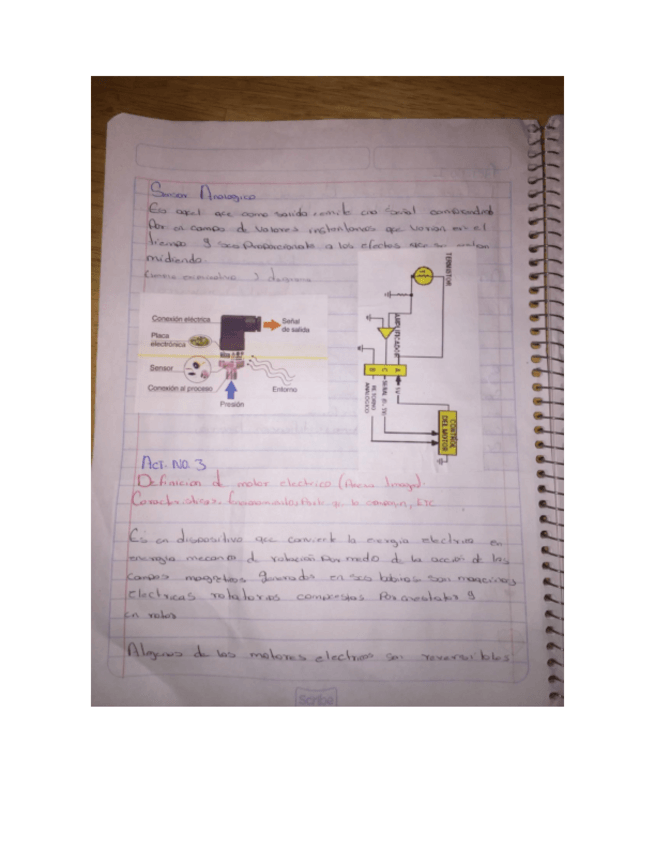 Sensor Analogico
Es aquel que como salida emite una señal comprendida
Por un campo de valores instantaneos que varian en el
tiempo y son Proporcionales a los efectos que se estan
midiendo.
y diagrama
Conexión eléctrica
Señal
de salida
Placa
electrónica
Sensor
Conexión al proceso
Entorno
Presión
TERMISTOR
AMPLIFICADOR
A
C
B
5V
SEÑAL 0-5V
RETORNO
ANALOGICO
CONTROL
DEL MOTOR
Act. No. 3
Definicion d motor electrico (Anexa Imagen).
Caracteristicas, funcionamiento, Partes q lo componen, ETC
Es un dispositivo que convierte la energia electrica en
energia mecanica d rotación Por medio de la acción de los
campos magneticos generados en sus bobinas son maquinas
electricas rotatorias compuestas Por un estator y
un rotor
Algunos de los motores electricos son reversibles
Scribe